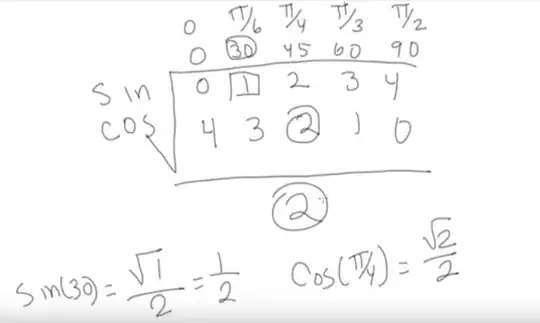 0 π/6 π/4 π/3 π/2
0 30 45 60 90
sin 0 1 2 3 4
cos 4 3 2 1 0
2
sin(30) = √1/2 = 1/2 cos(π/4) = √2/2